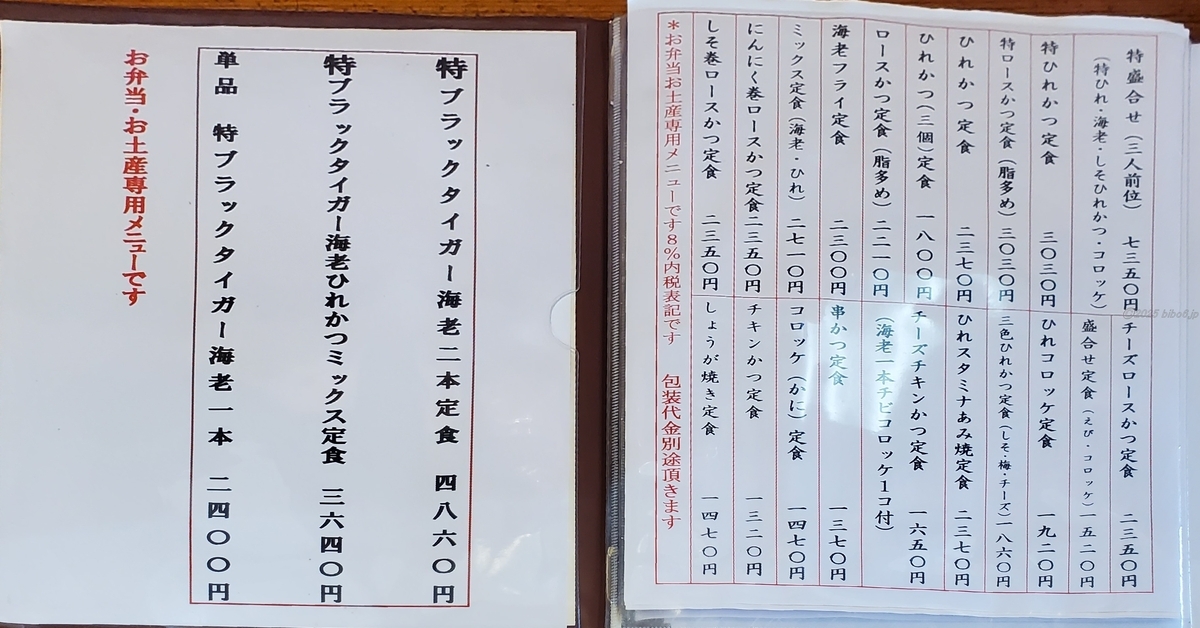 特盛合せ（三人前位） 七三五〇円
（特ひれ・海老・しそひれかつ・コロッケ）
特ひれかつ定食 三〇三〇円
特ロースかつ定食（脂多め） 三〇三〇円
ひれかつ定食 二三七〇円
ひれかつ（三個）定食 一八〇〇円
ロースかつ定食（脂多め） 二二一〇円
海老フライ定食 二三〇〇円
ミックス定食（海老・ひれ） 二七一〇円
にんにく巻ロースかつ定食 二三五〇円
しそ巻ロースかつ定食 二三五〇円
チーズロースかつ定食 二三五〇円
盛合せ定食（えび・コロッケ） 一五二〇円
ひれコロッケ定食 一九二〇円
三色ひれかつ定食（しそ・梅・チーズ） 一八六〇円
ひれスタミナあみ焼定食 二三七〇円
チーズチキンかつ定食 一六五〇円
（海老一本チビコロッケ1コ付）
串かつ定食 一三七〇円
コロッケ（かに）定食 一四七〇円
チキンかつ定食 一三二〇円
しょうが焼き定食 一四七〇円
＊お弁当お土産専用メニューです8％内税表記です 包装代金別途頂きます
特ブラックタイガー海老二本定食 四八六〇円
特ブラックタイガー海老ひれかつミックス定食 三六四〇円
単品 特ブラックタイガー海老一本 二四〇〇円
お弁当・お土産専用メニューです